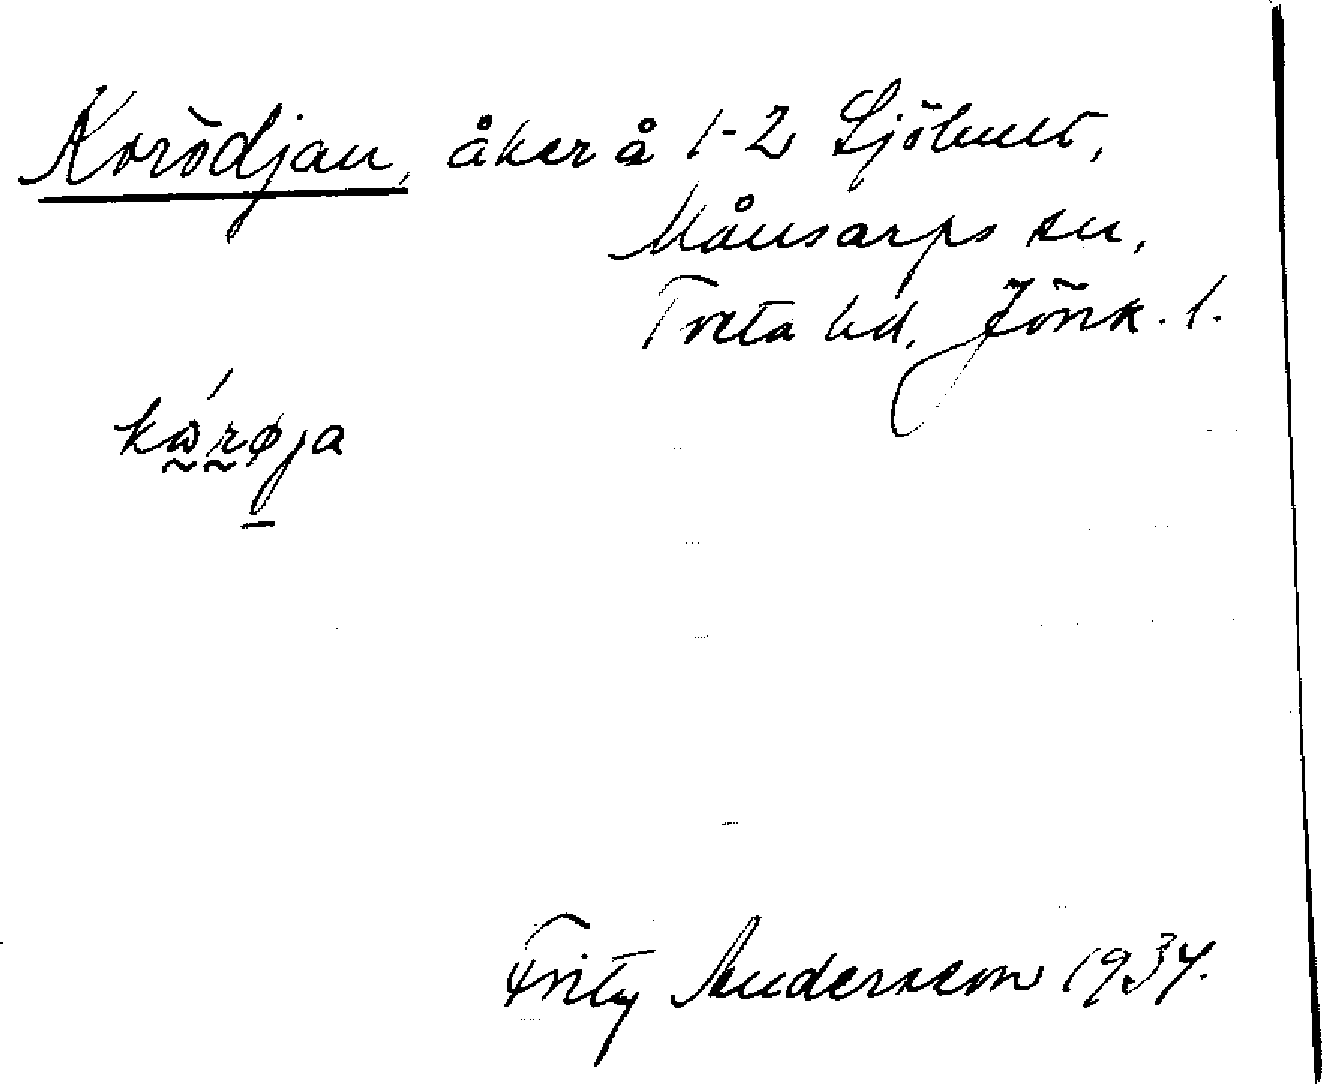 Korödjan, åker å 1-2 Sjöhult,
Månsarps sn,
Tveta hd, Jönk. l.
kárøja
Fritz Andersson 1934.